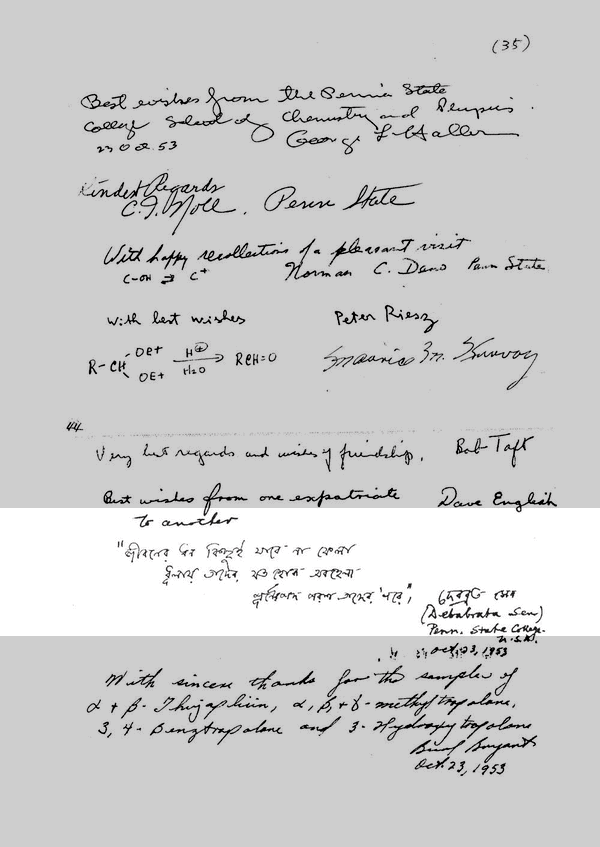 (35)
Best wishes from the Penna State
College School of Chemistry and Physics.
23 Oct. 53 George L Haller
Kindest Regards
C. I. Noll. Penn State
With happy recollections of a pleasant visit
C-OH ⇌ C+ Norman C. Deno Penn State
With best wishes Peter Riesz
R-CH OEt OEt H⊕ H₂O → RCH=O
44
Very best regards and wishes of friendship. Bob Taft
Best wishes from one expatriate Dave English
to another
"জীবনের ধন কিছুই যাবে না ফেলা
ধূলায় তাদের যত হোক অবহেলা
তাদের 'পরে"
দেবব্রত সেন
(Debabrata Sen)
Penn. State College.
U.S.A.
Oct. 23, 1953
With sincere thanks for the samples of
α + β- Thujaplicin, α, β, + γ- methyl tropolone,
3, 4- Benztropolone and 3- Hydroxytropolone
Bryant
Oct. 23, 1953